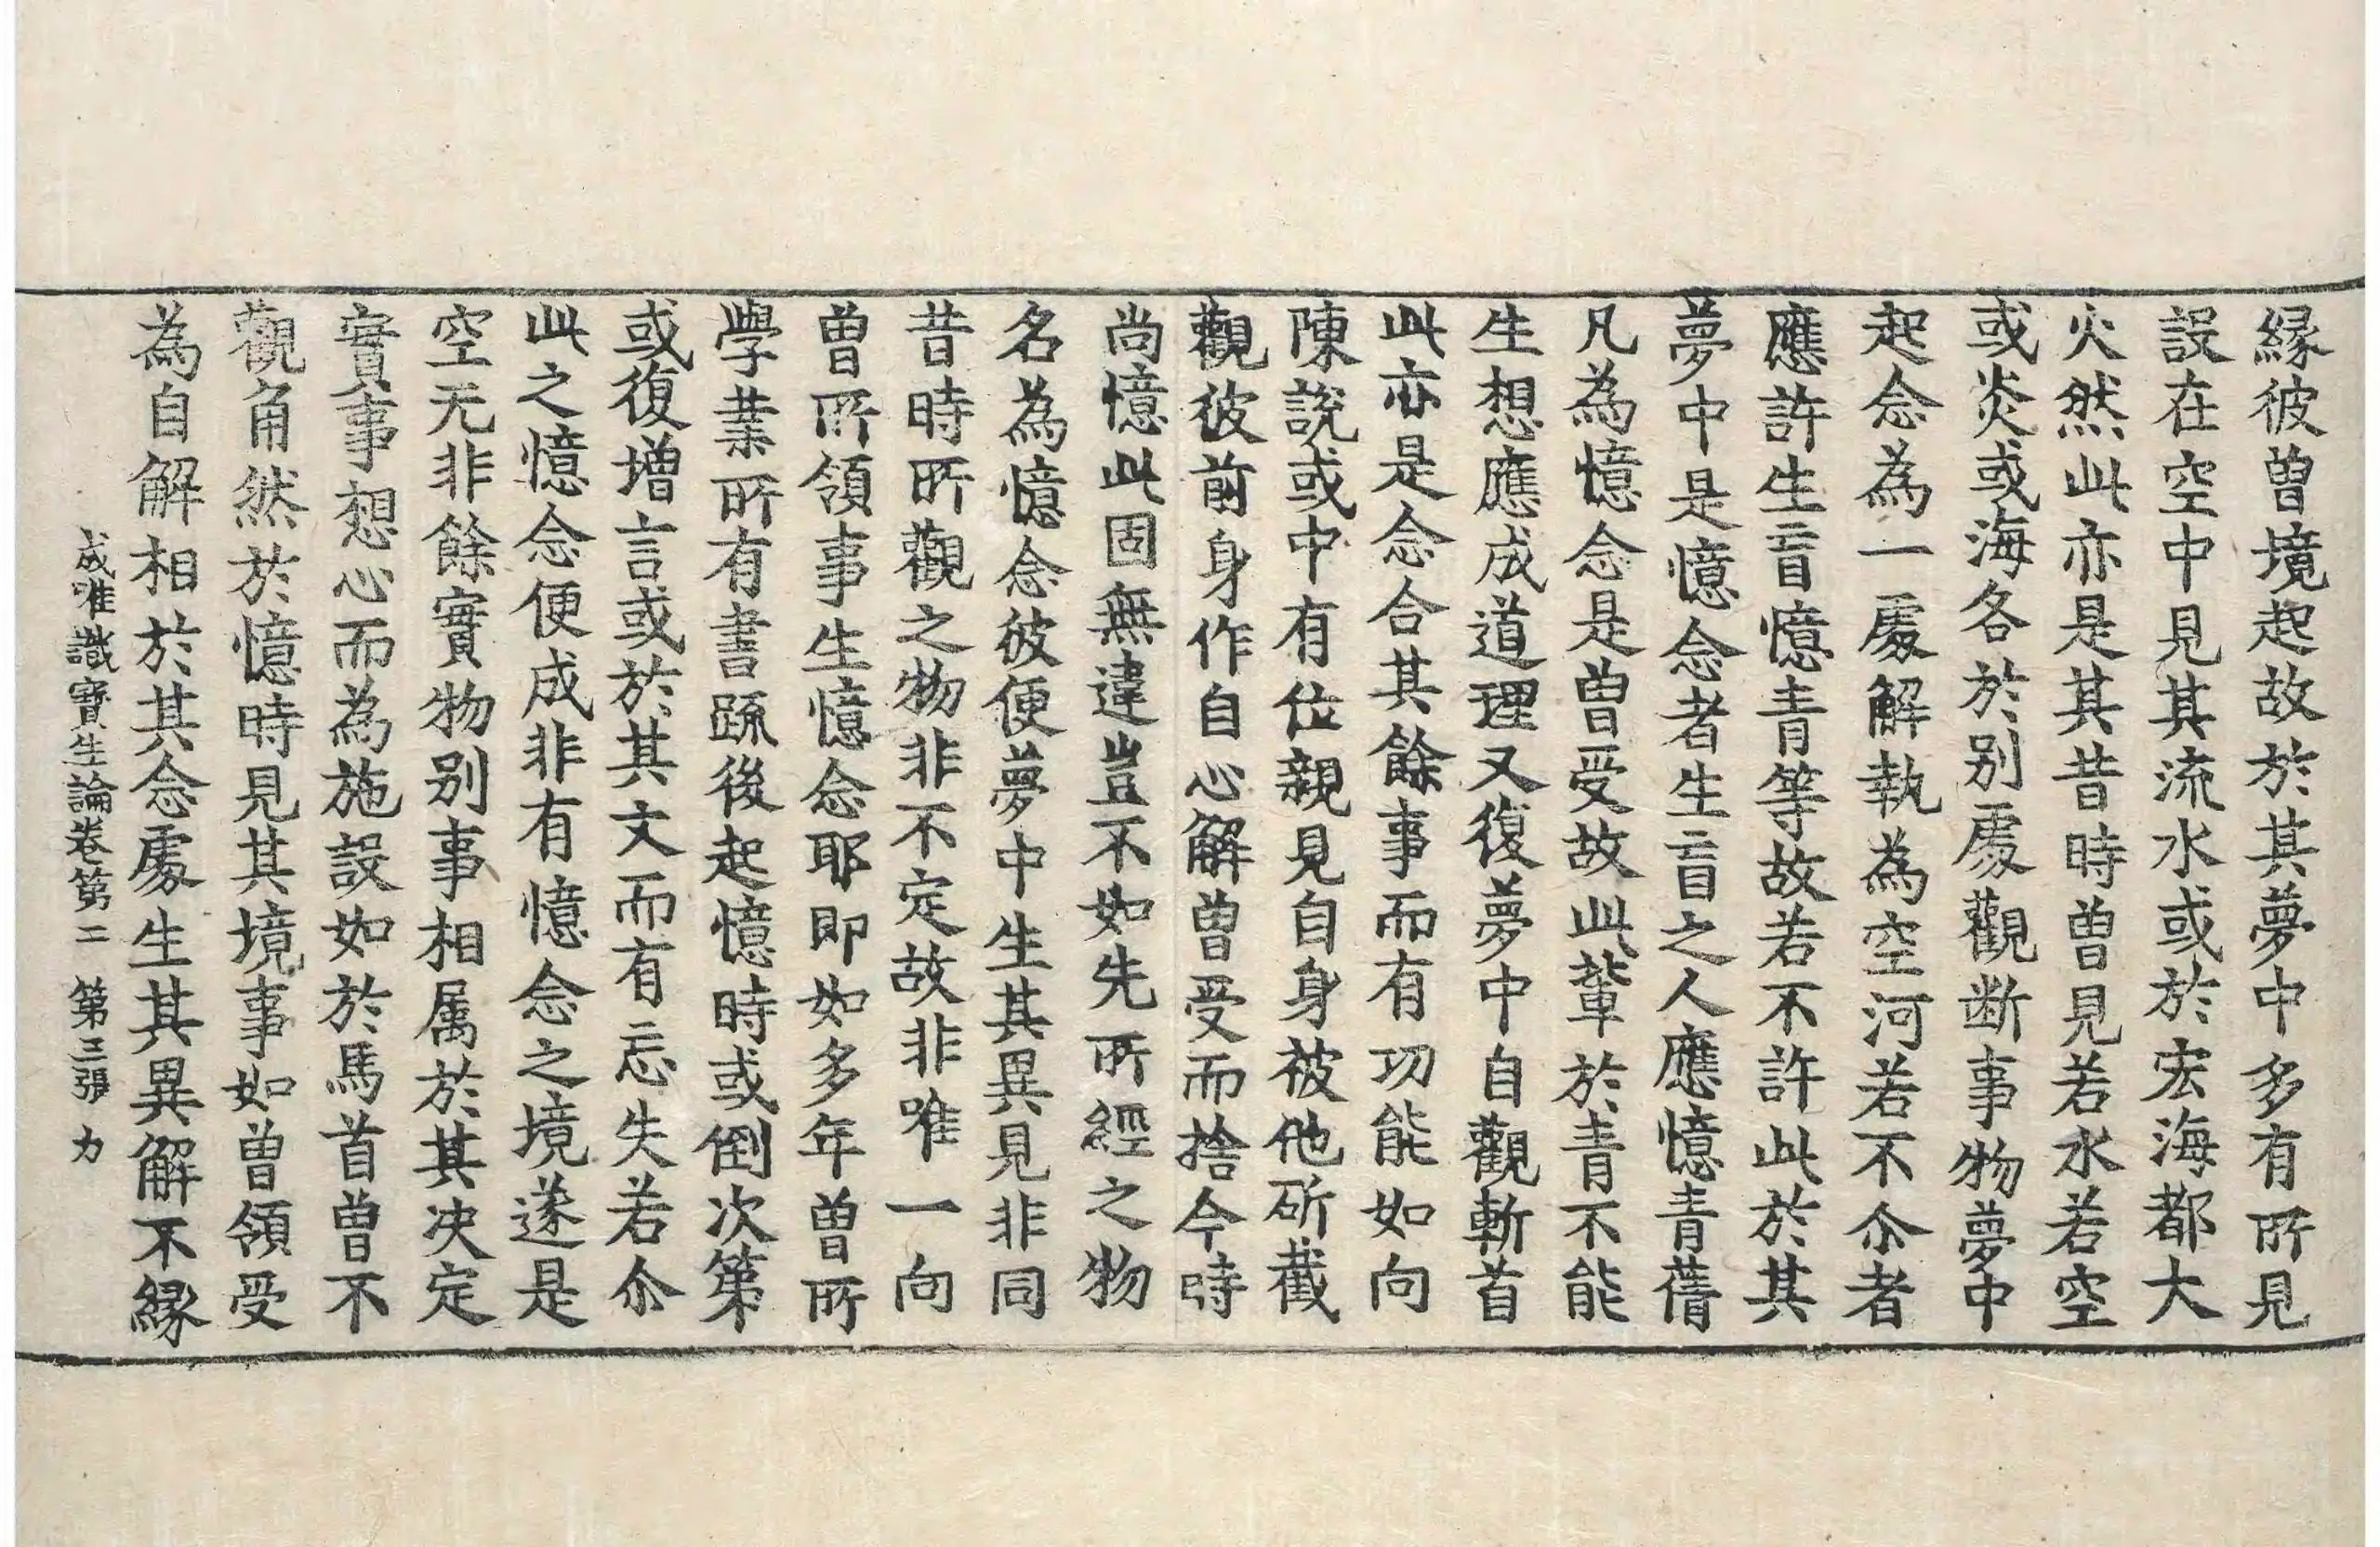 縁彼曽境起故於其夢中多有所見
設在空中見其流水或於宏海都大
火然此亦是其昔時曽見若水若空
或炎或海各於别處觀断事物夢中
起念為一處解執為空河若不尒者
應許生盲憶青等故若不許此於其
夢中是憶念者生盲之人應憶青蒨
凡為憶念是曽受故此輩於青不能
生想應成道理又復夢中自觀斬首
此亦是念合其餘事而有功能如向
陳說或中有位親見自身被他斫截
觀彼前身作自心解曽受而捨今時
尚憶此固無違豈不如先所經之物
名為憶念彼便夢中生其異見非同
昔時所觀之物非不定故非唯一向
曽所領事生憶念耶即如多年曽所
學業所有書䟽後起憶時或倒次第
或復增言或於其文而有忘失若尒
此之憶念便成非有憶念之境遂是
空无非餘實物别事相属於其决定
實事想心而為施設如於馬首曽不
觀角然於憶時見其境事如曽領受
為自解相於其念處生其異解不縁
成唯識寶生論卷第二 第三張 力